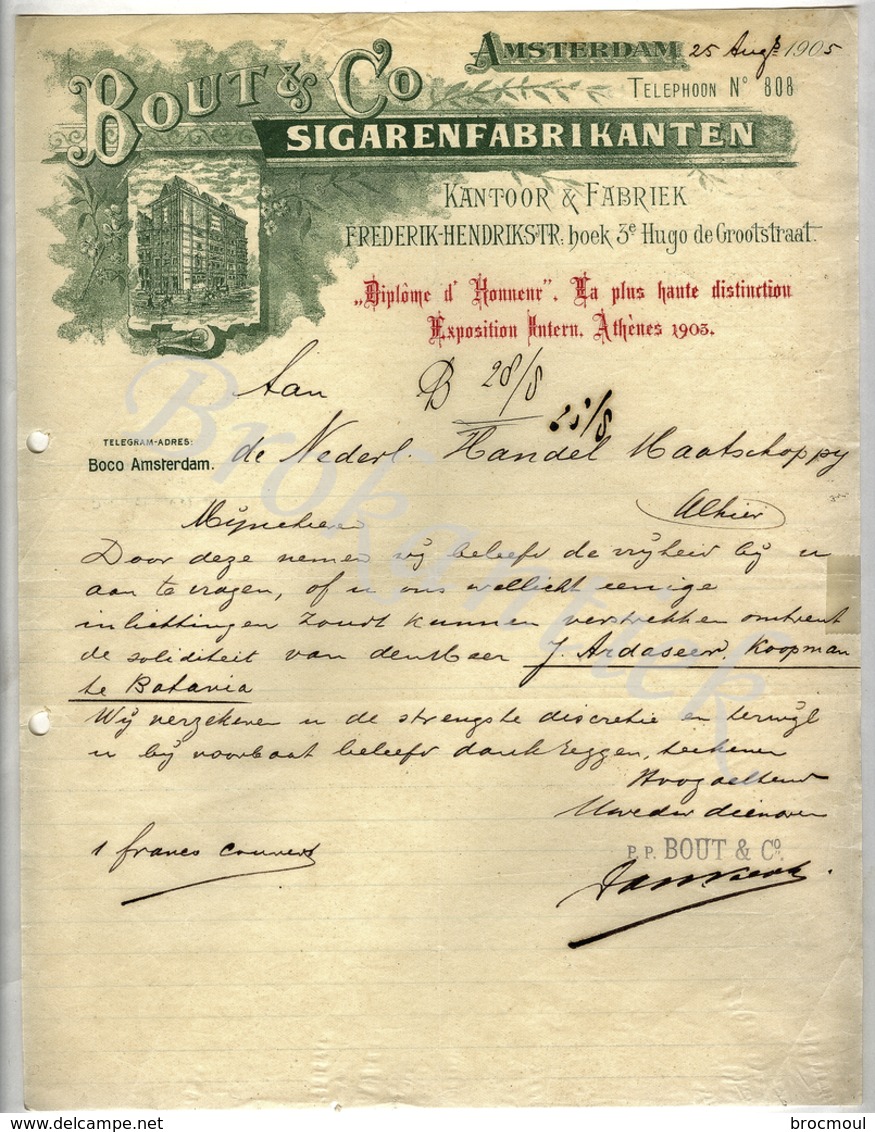 BOUT & Co
AMSTERDAM 25 Augs 1905
TELEPHOON No 808
SIGARENFABRIKANTEN
KANTOOR & FABRIEK
FREDERIK-HENDRIKSTR. hoek 3e Hugo de Grootstraat.
„Diplôme d' Honneur". La plus haute distinction
Exposition Intern. Athènes 1903.
Aan B 28/8
25/8
TELEGRAM-ADRES:
Boco Amsterdam.
de Nederl. Handel Maatschappy
Alhier
Mijneheeren
Door deze nemen wij beleefd de vrijheid bij u
aan te vragen, of u ons wellicht eenige
inlichtingen zoudt kunnen verstrekken omtrent
de soliditeit van den Heer J. Ardaseer, Koopman
te Batavia
Wij verzekeren u de strengste discretie en terwijl
u bij voorbaat beleefd dank zeggen, teekenen
Hoogachtend
Uwe dw dienaren
P. P. BOUT & Co.
1 franco couvert
Brokantiek
delcampe.net
brocmoul